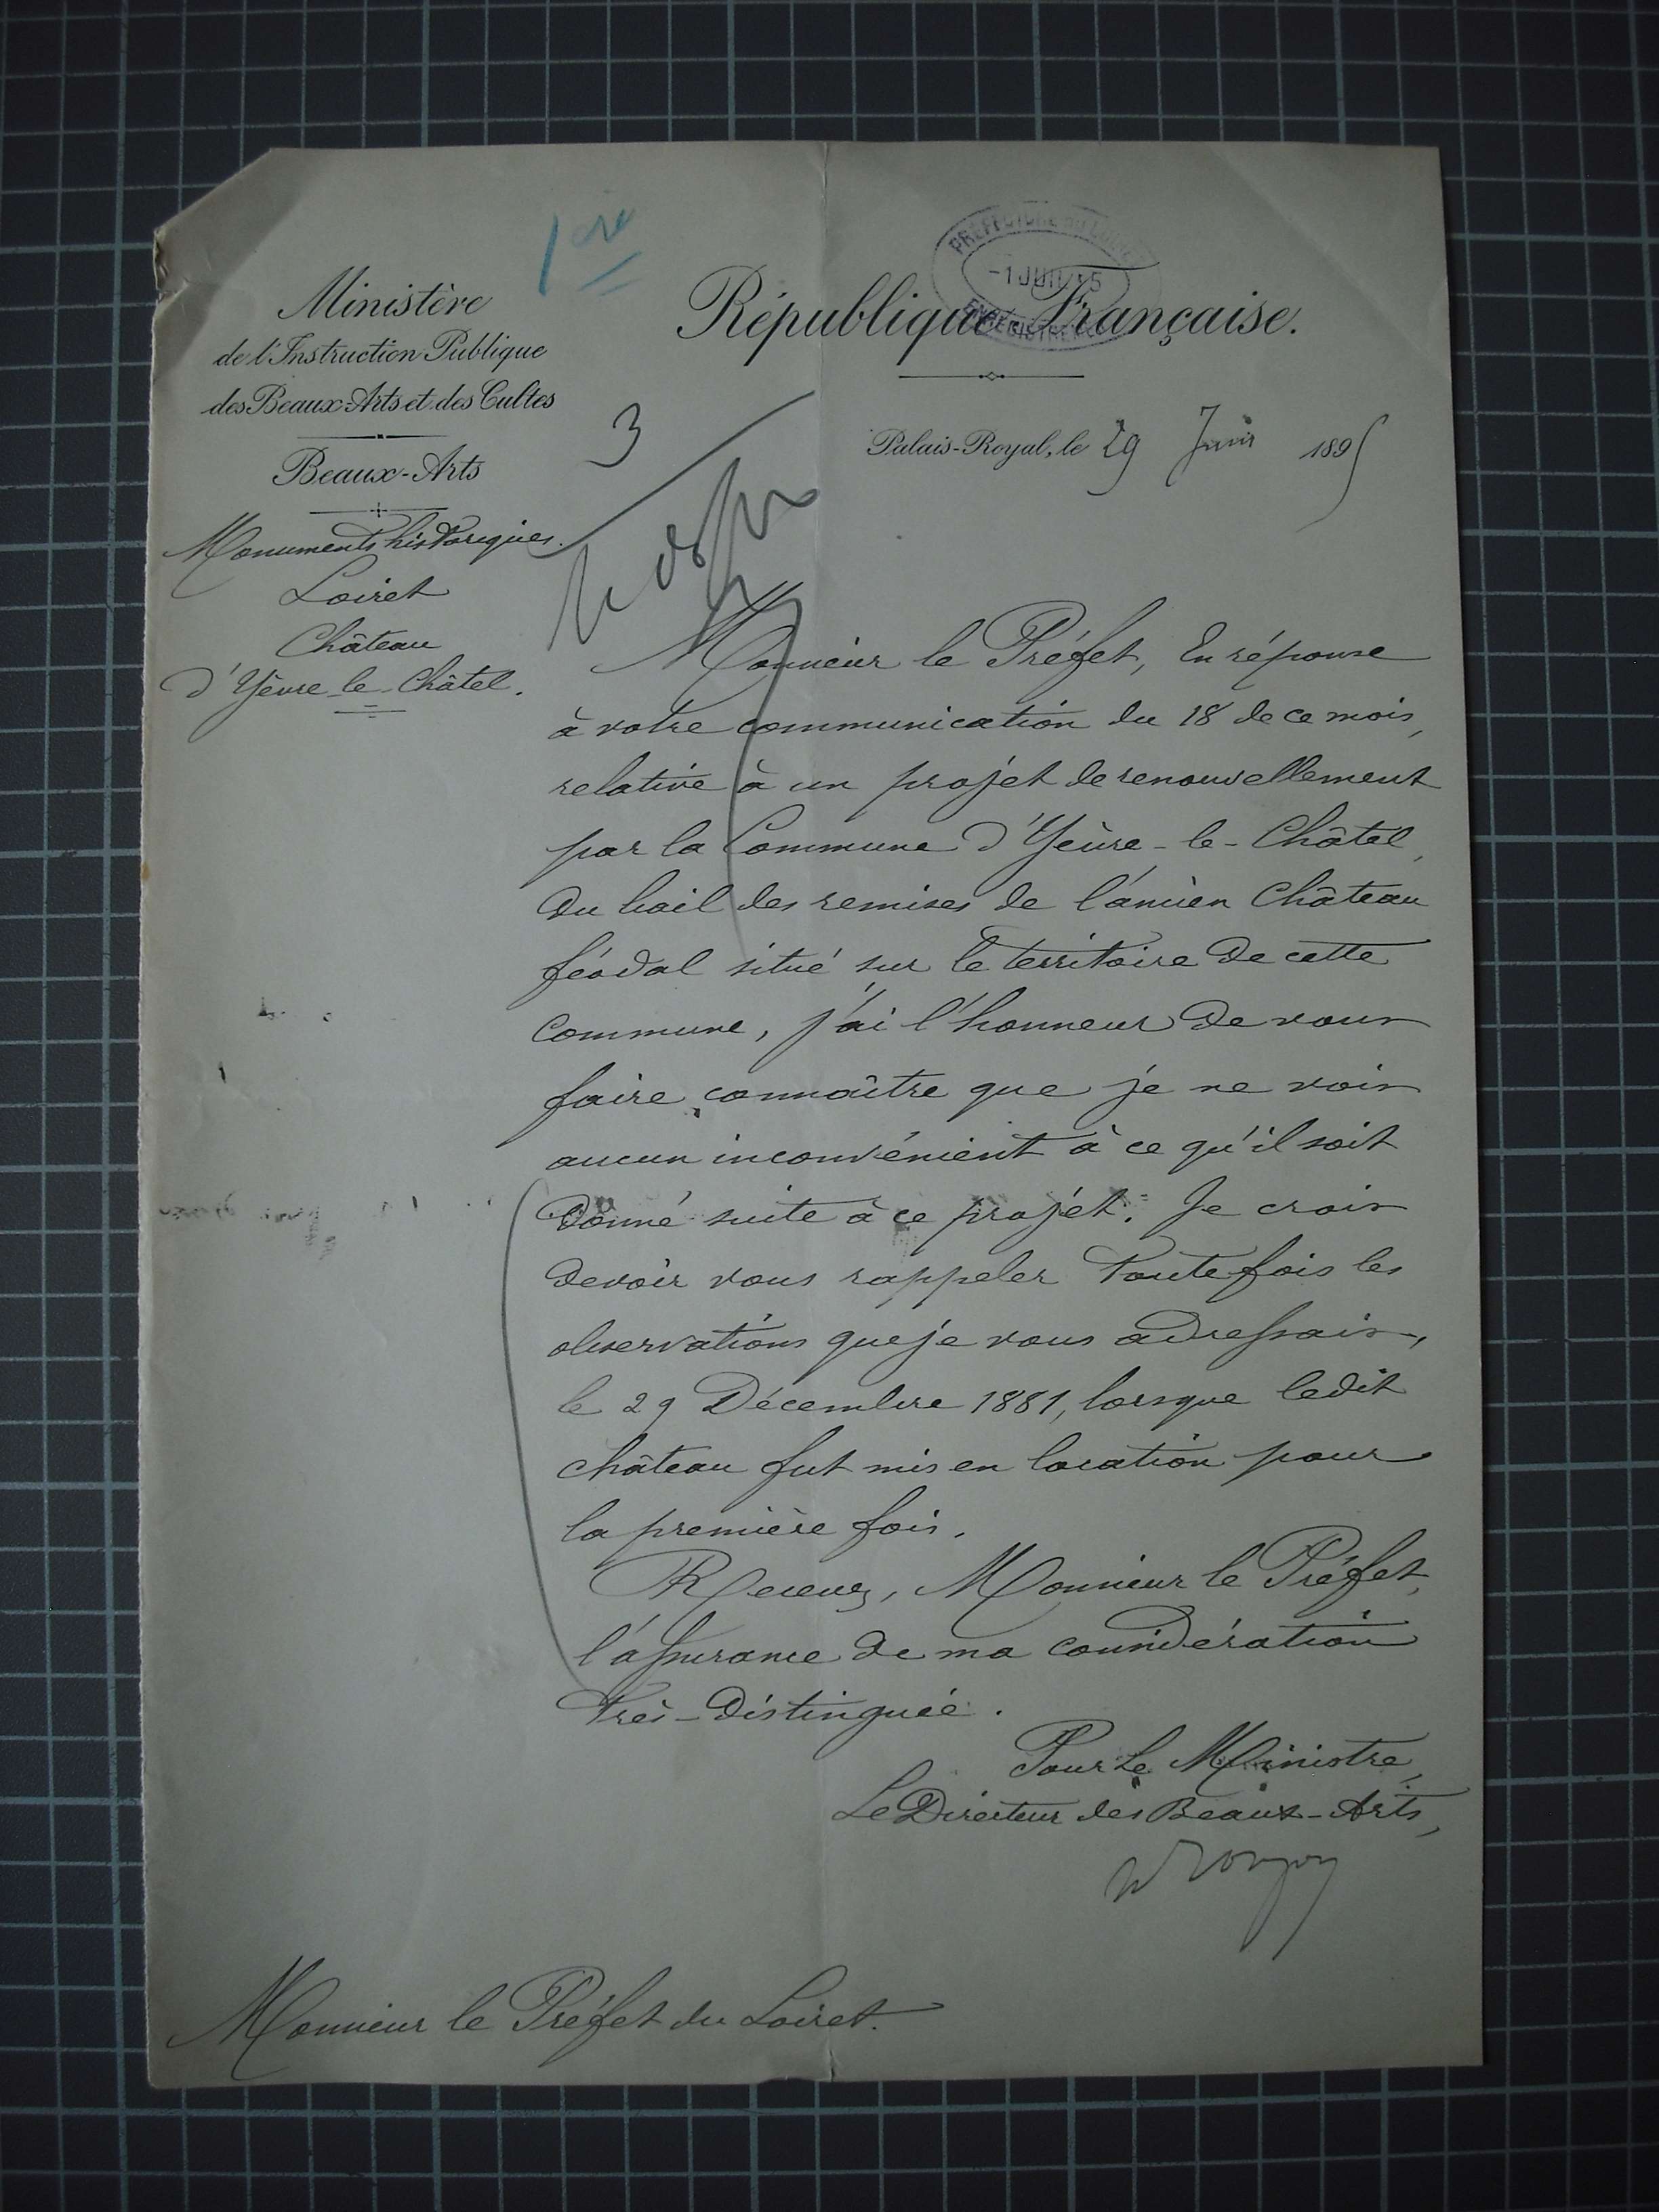 1ère
PRÉFECTURE DU LOIRET
-1 JUIL 95
ENREGISTREMENT
Ministère
de l'Instruction Publique
des Beaux-Arts et des Cultes
Beaux-Arts
Monuments historiques.
Loiret
Château
d'Yèvre-le-Châtel.
République Française.
3
Palais-Royal, le 29 Juin 1895
Monsieur le Préfet, En réponse
à votre communication du 18 de ce mois,
relative à un projet de renouvellement
par la Commune d'Yèvre-le-Châtel,
du bail des remises de l'ancien Château
féodal situé sur le territoire de cette
Commune, j'ai l'honneur de vous
faire connaître que je ne vois
aucun inconvénient à ce qu'il soit
donné suite à ce projet. Je crois
devoir vous rappeler toutefois les
observations que je vous adressais,
le 29 Décembre 1881, lorsque ledit
château fut mis en location pour
la première fois.
Recevez, Monsieur le Préfet,
l'assurance de ma considération
très-distinguée.
Pour le Ministre,
Le Directeur des Beaux-Arts,
Monsieur le Préfet du Loiret.